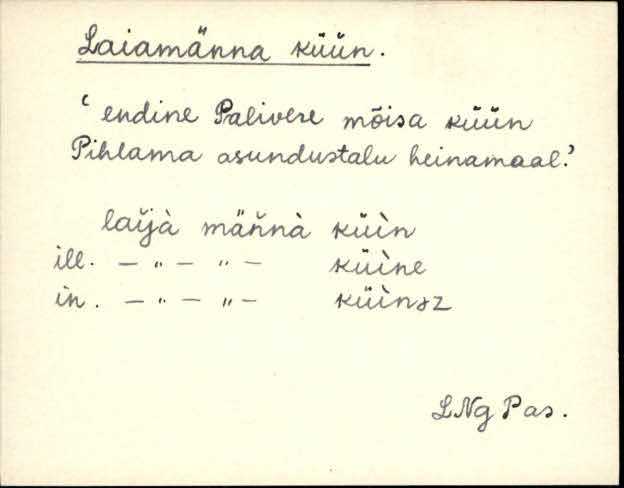 Laiamänna küün.
‘endine Palivere mõisa küün
Pihlama asundustalu heinamaal.’
laĭjà mäňnà küìn
ill. – " – " – küìne
in. – " – " – küìnsz
LNg Pas.